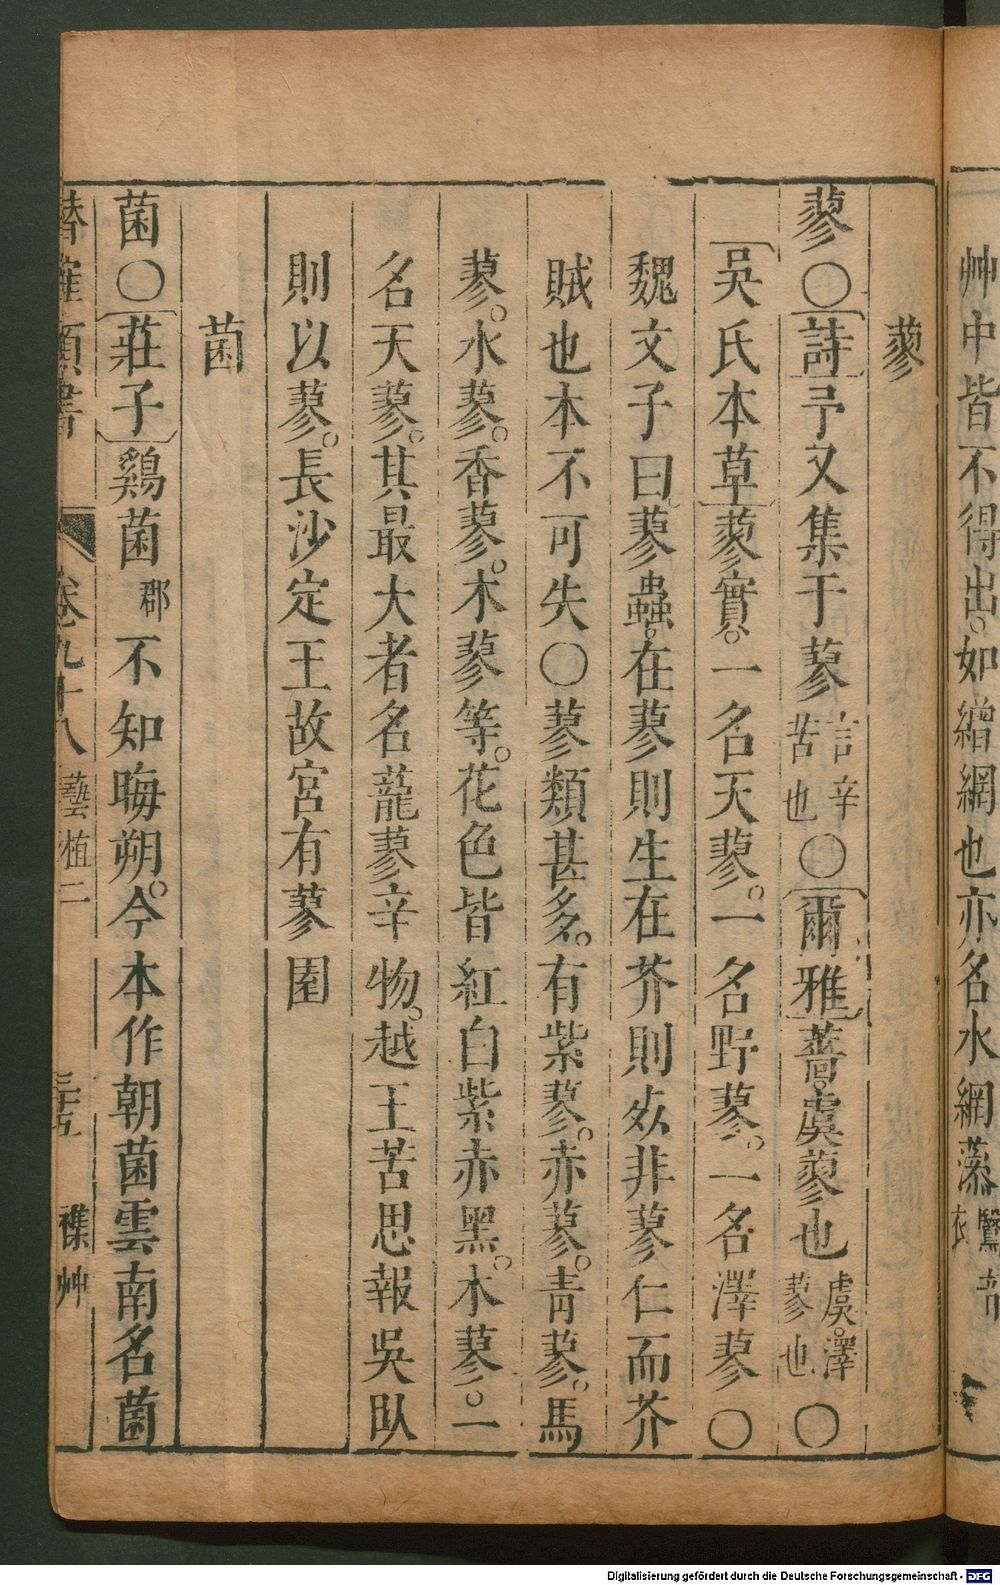 艸中皆不得出。如繒網也亦名水網藻
蓼
蓼○詩予又集于蓼言辛苦也○爾雅薔。虞蓼也虞。澤蓼也○
吳氏本草蓼實。一名天蓼。一名野蓼。一名澤蓼○
魏文子曰蓼蟲。在蓼則生在芥則𣦸非蓼仁而芥
賊也本不可失○蓼類甚多。有紫蓼。赤蓼。青蓼。馬
蓼。水蓼。香蓼。木蓼等。花色皆紅白紫赤黑。木蓼。一
名天蓼。其最大者名蘢蓼辛物。越王苦思報吳臥
則以蓼。長沙定王故宮有蓼園
菌
菌○莊子鷄菌郡不知晦朔。今本作朝菌雲南名菌
潛確類書 卷九十八 藝植二 三十五 襍艸
Digitalisierung gefördert durch die Deutsche Forschungsgemeinschaft - DFG